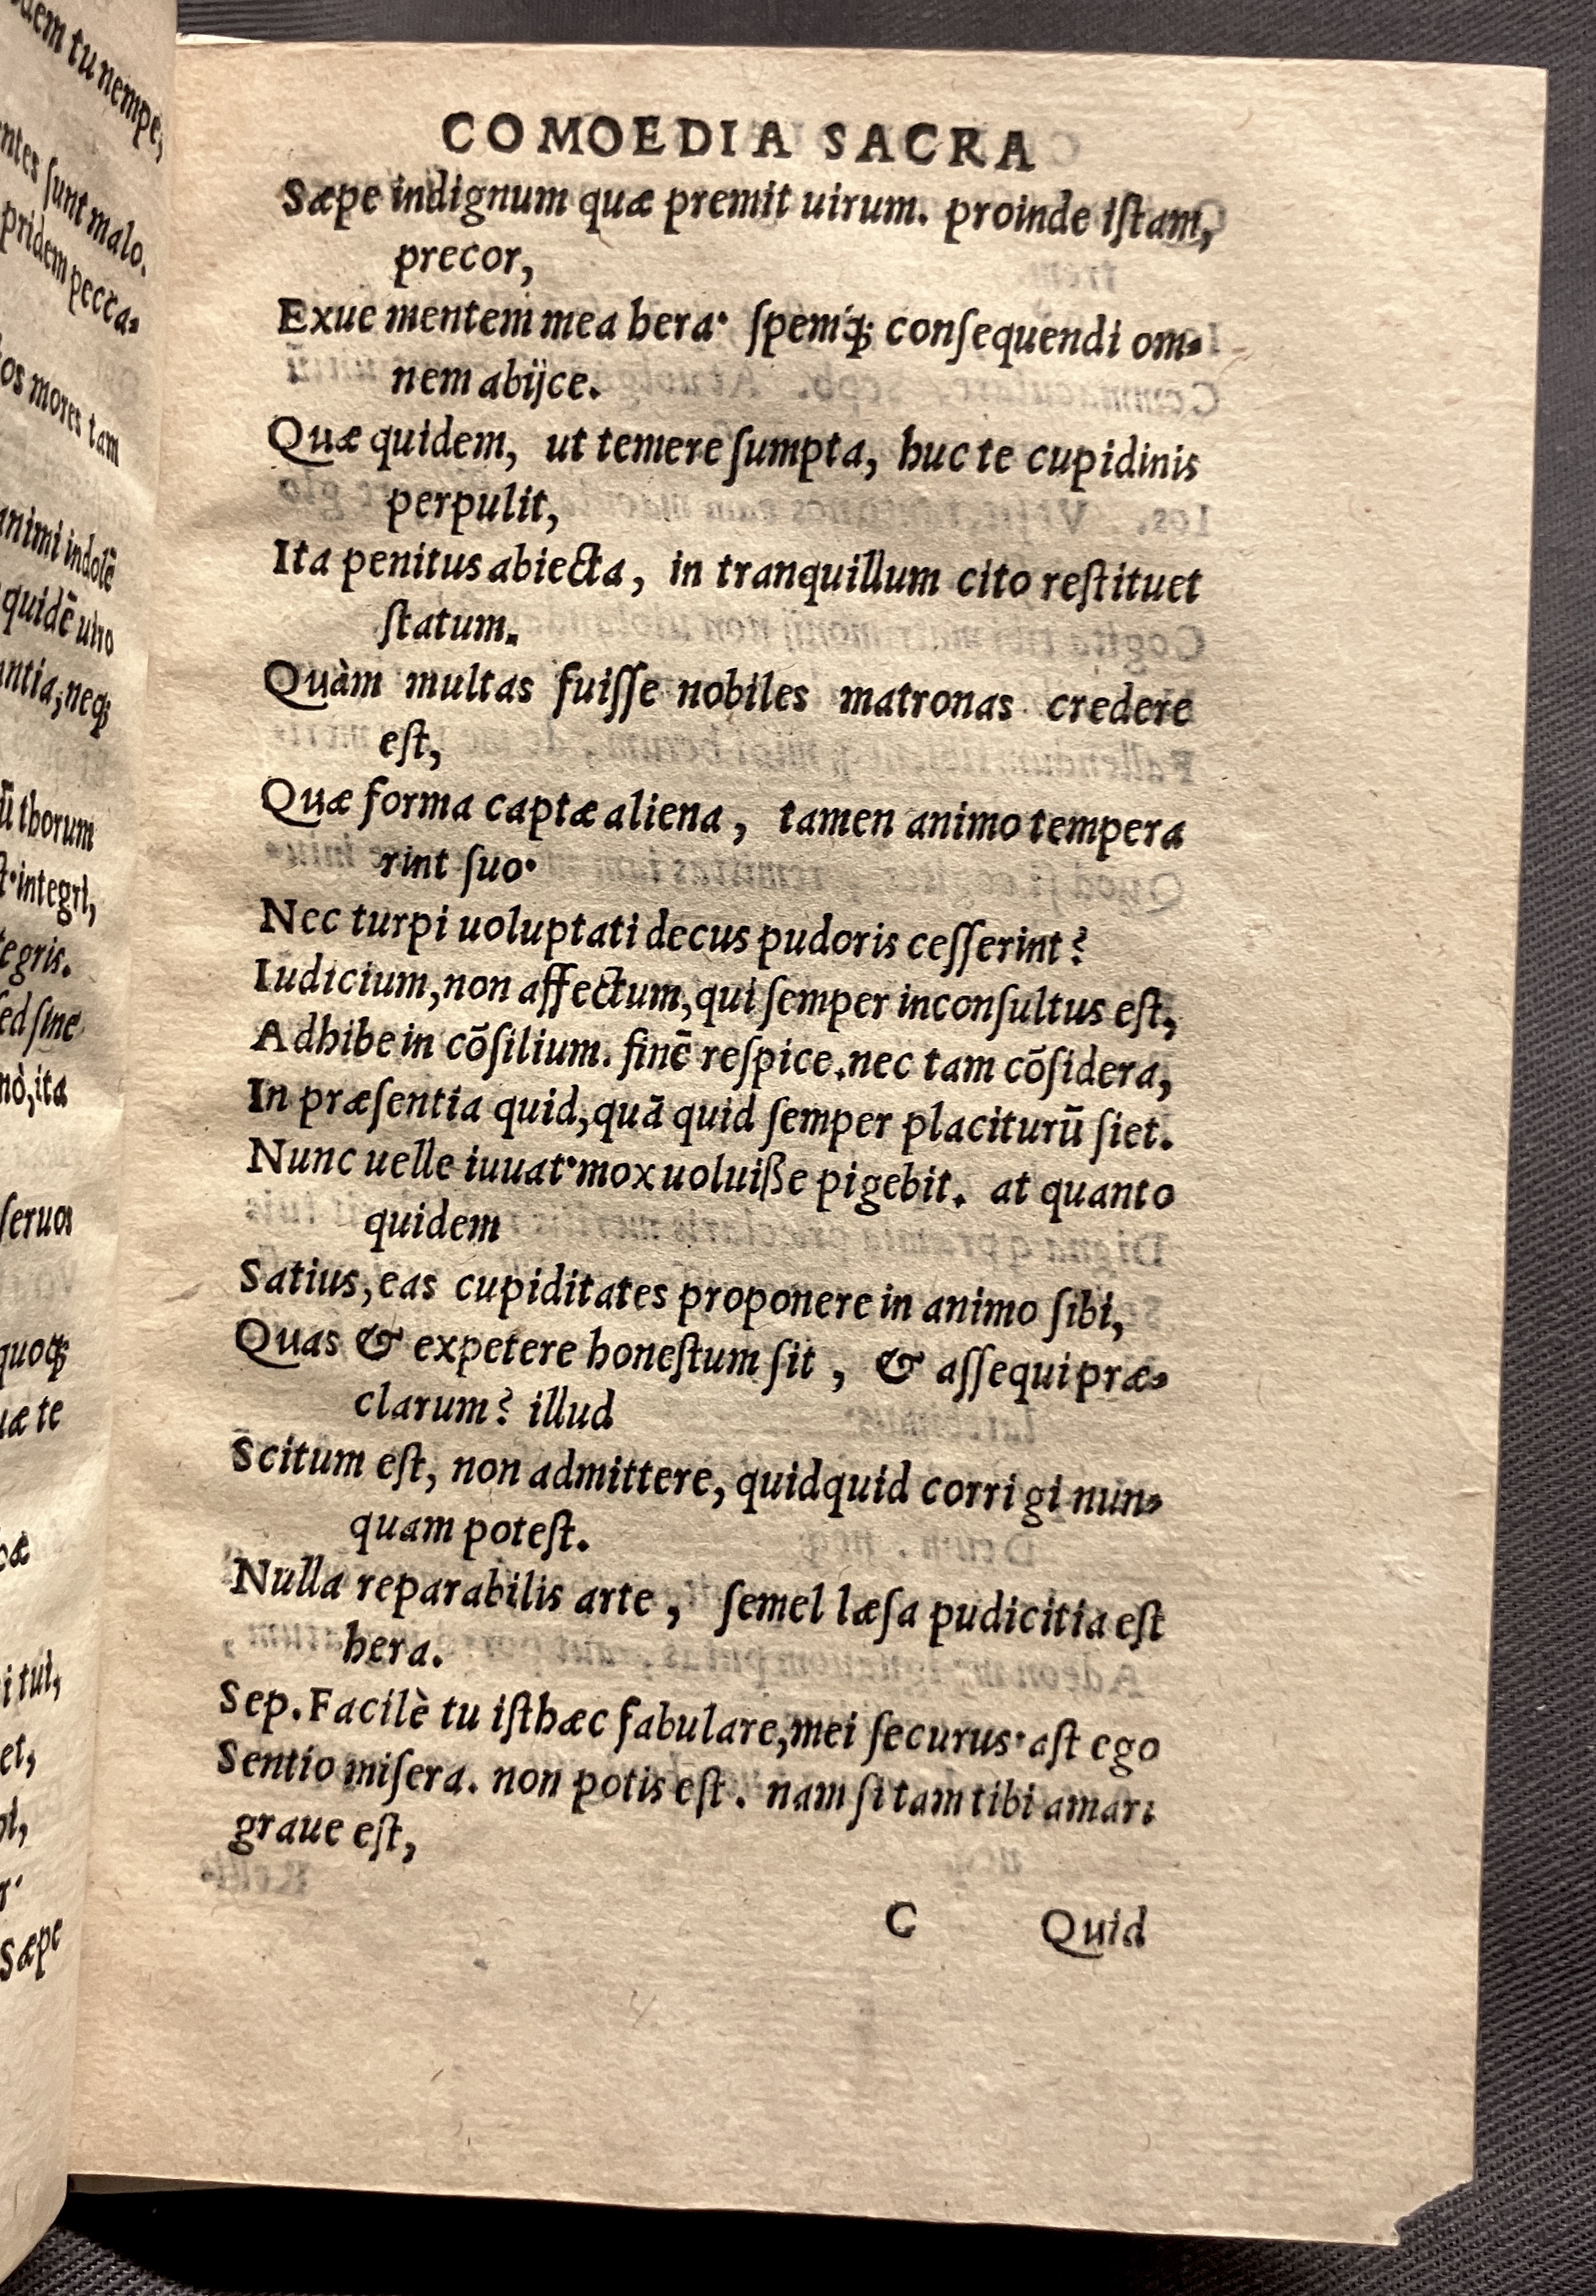 dem tu nempe,
ntes ſunt malo.
pridem pecca-
os mores tam
animi indolē
quidē uiro
antia, neq;
ū thorum
integri,
tegris.
ſed ſine
nò, ita
ſeruos
quoq;
uæ te
i tui,
et,
Sæpe
COMOEDIA SACRA
Sæpe indignum quæ premit uirum. proinde iſtam,
precor,
Exue mentem mea hera· ſpemq́; conſequendi om-
nem abijce.
Quæ quidem, ut temere ſumpta, huc te cupidinis
perpulit,
Ita penitus abiecta, in tranquillum cito reſtituet
ſtatum.
Quàm multas fuiſſe nobiles matronas credere
eſt,
Quæ forma captæ aliena, tamen animo tempera
rint ſuo·
Nec turpi uoluptati decus pudoris ceſſerint?
Iudicium, non affectum, qui ſemper inconſultus eſt,
Adhibe in cōſilium. finē reſpice. nec tam cōſidera,
In præſentia quid, quā quid ſemper placiturū ſiet.
Nunc uelle iuuat· mox uoluiße pigebit. at quanto
quidem
Satius, eas cupiditates proponere in animo ſibi,
Quas & expetere honeſtum ſit, & aſſequi præ-
clarum? illud
Scitum eſt, non admittere, quidquid corrigi nun-
quam poteſt.
Nulla reparabilis arte, ſemel læſa pudicitia eſt
hera.
Sep. Facilè tu iſthæc fabulare, mei ſecurus· aſt ego
Sentio miſera. non potis eſt. nam ſi tam tibi amari
graue eſt,
C Quid